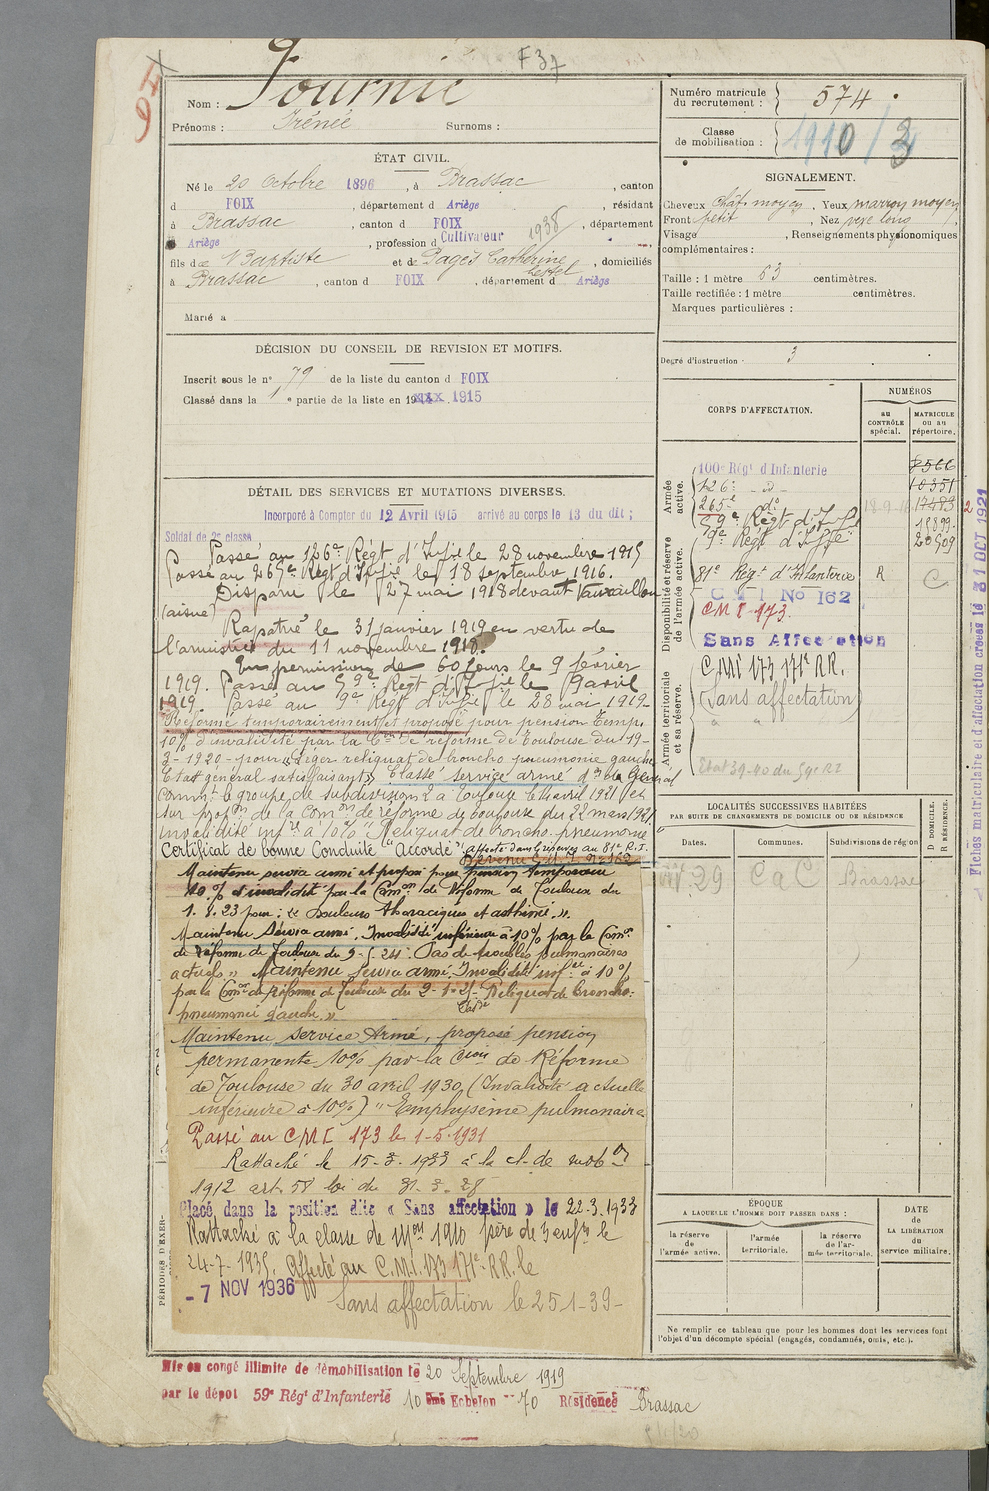 F 37
94
Nom : Fournié
Prénoms : Irénée Surnoms :
ÉTAT CIVIL.
Né le 20 Octobre 1896, à Brassac, canton
d FOIX, département d Ariège, résidant
à Brassac, canton d FOIX, département
d Ariège, profession d Cultivateur 1938
fils de Baptiste et de Pagès Catherine, domiciliés
à Brassac, canton d FOIX, département d Ariège
Marié à
DÉCISION DU CONSEIL DE REVISION ET MOTIFS.
Inscrit sous le n° 79 de la liste du canton d FOIX
Classé dans la 1e partie de la liste en 19 1915
DÉTAIL DES SERVICES ET MUTATIONS DIVERSES.
Incorporé à Compter du 12 Avril 1915 arrivé au corps le 13 du dit ;
Soldat de 2e classe
Passé au 126e Régt d'Infie le 28 novembre 1915
Passé au 265e Régt d'Infie le 18 septembre 1916.
Disparu le 27 mai 1918 devant Vauxaillon
(aisne)
Rapatrié le 31 janvier 1919 en vertu de
l'armistice du 11 novembre 1918.
En permission de 60 jours le 9 février
1919. Passé au 59e Régt d'Infie le 9 avril
1919. Passé au 9e Régt d'Infie le 28 mai 1919-
Réformé temporairement et proposé pour pension temp.
10% d'invalidité par la Con de réforme de Toulouse du 19-
3-1920- pour "Léger reliquat de broncho pneumonie gauche
Etat général satisfaisant" Classé service armé don de la Général
Commt le groupe de subdivision 2 à Toulouse le 4 avril 1921 et
sur propon de la Comon de réforme de Toulouse du 22 mars 1921
invalidité infre à 10% "Reliquat de broncho-pneumonie
Certificat de bonne Conduite "Accordé" affecté dans les réserves au 81e R.I.
Maintenu service armé et proposé pour pension temporaire
10 % d'invalidité par la Comon de Réforme de Toulouse du
1. 8. 23 pour : « douleurs thoraciques et asthme. ».
Maintenu Service armé. Invalidité inférieure à 10% par la Comon
de Réforme de Toulouse du 9-5.24 : Pas de troubles pulmonaires
actuels » Maintenu service armé. Invalidité infre à 10%
par la Comon de Réforme de Toulouse du 2-1-25- Reliquat de broncho-
pneumonie gauche. »
Maintenu Service Armé, proposé pension
permanente 10% par la Cion de Réforme
de Toulouse du 30 avril 1930, (Invalidité actuelle
inférieure à 10%) "Emphysème pulmonaire
Passé au CMI 173 le 1-5-1931
Rattaché le 15-3-1933 à la cl. de mobon
1912 art. 58 loi du 31-3-28
Placé dans la position dite « Sans affectation » le 22.3.1933
Rattaché à la classe de Mon 1910 père de 3 enfts le
24-7-1935. Affecté au C.M.I. 173 171e R.R. le
- 7 NOV 1936
Sans affectation le 25-1-39-
PÉRIODES D'EXER-
Mis en congé illimité de démobilisation le 20 Septembre 1919
par le dépot 59e Régt d'Infanterie 10 ème Echelon 70 Résidence Brassac
Numéro matricule
du recrutement : 574
Classe
de mobilisation : 1910/3
SIGNALEMENT.
Cheveux chât. moyen, Yeux marron moyen
Front petit, Nez long
Visage, Renseignements physionomiques
complémentaires :
Taille : 1 mètre 63 centimètres.
Taille rectifiée : 1 mètre centimètres.
Marques particulières :
Degré d'instruction : 3
CORPS D'AFFECTATION.
NUMÉROS
au
CONTRÔLE
spécial.
MATRICULE
ou au
répertoire.
Armée
active.
100e Régt d'Infanterie 8566
126e - d° - 10351
265e d° 17483
59e Régt d'Infie 18899
9e Régt d'Infie 20509
Disponibilité et réserve
de l'armée active.
81e Régt d'Infanterie R C
CMI No 162
CMI 173.
Sans Affectation
Armée territoriale
et sa réserve.
C.M.I 173 171e RR.
(Sans affectation)
Etat 39-40 du 59e RI
LOCALITÉS SUCCESSIVES HABITÉES
PAR SUITE DE CHANGEMENTS DE DOMICILE OU DE RÉSIDENCE
D DOMICILE.
R RÉSIDENCE.
Dates.
Communes.
Subdivisions de région
29 CaC Brassac
ÉPOQUE
A LAQUELLE L'HOMME DOIT PASSER DANS :
DATE
de
LA LIBÉRATION
du
service militaire.
la réserve
de
l'armée active.
l'armée
territoriale.
la réserve
de l'ar-
mée territoriale.
Ne remplir ce tableau que pour les hommes dont les services font
l'objet d'un décompte spécial (engagés, condamnés, omis, etc.).
Fiches matriculaire et d'affectation créées le 31 OCT 1921